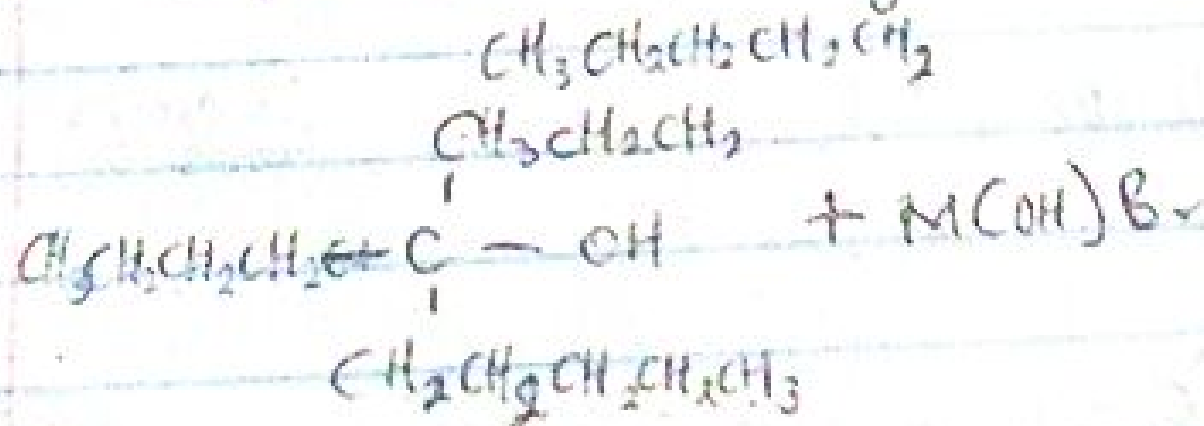 CH3CH2CH2CH2CH2
CH3CH2CH2
CH3CH2CH2CH2 — C — OH + M(OH)Br
CH2CH2CH2CH2CH3